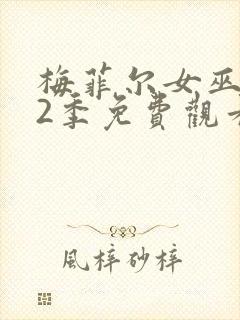 梅菲尔女巫
2季免費觀看
風梓砂梓